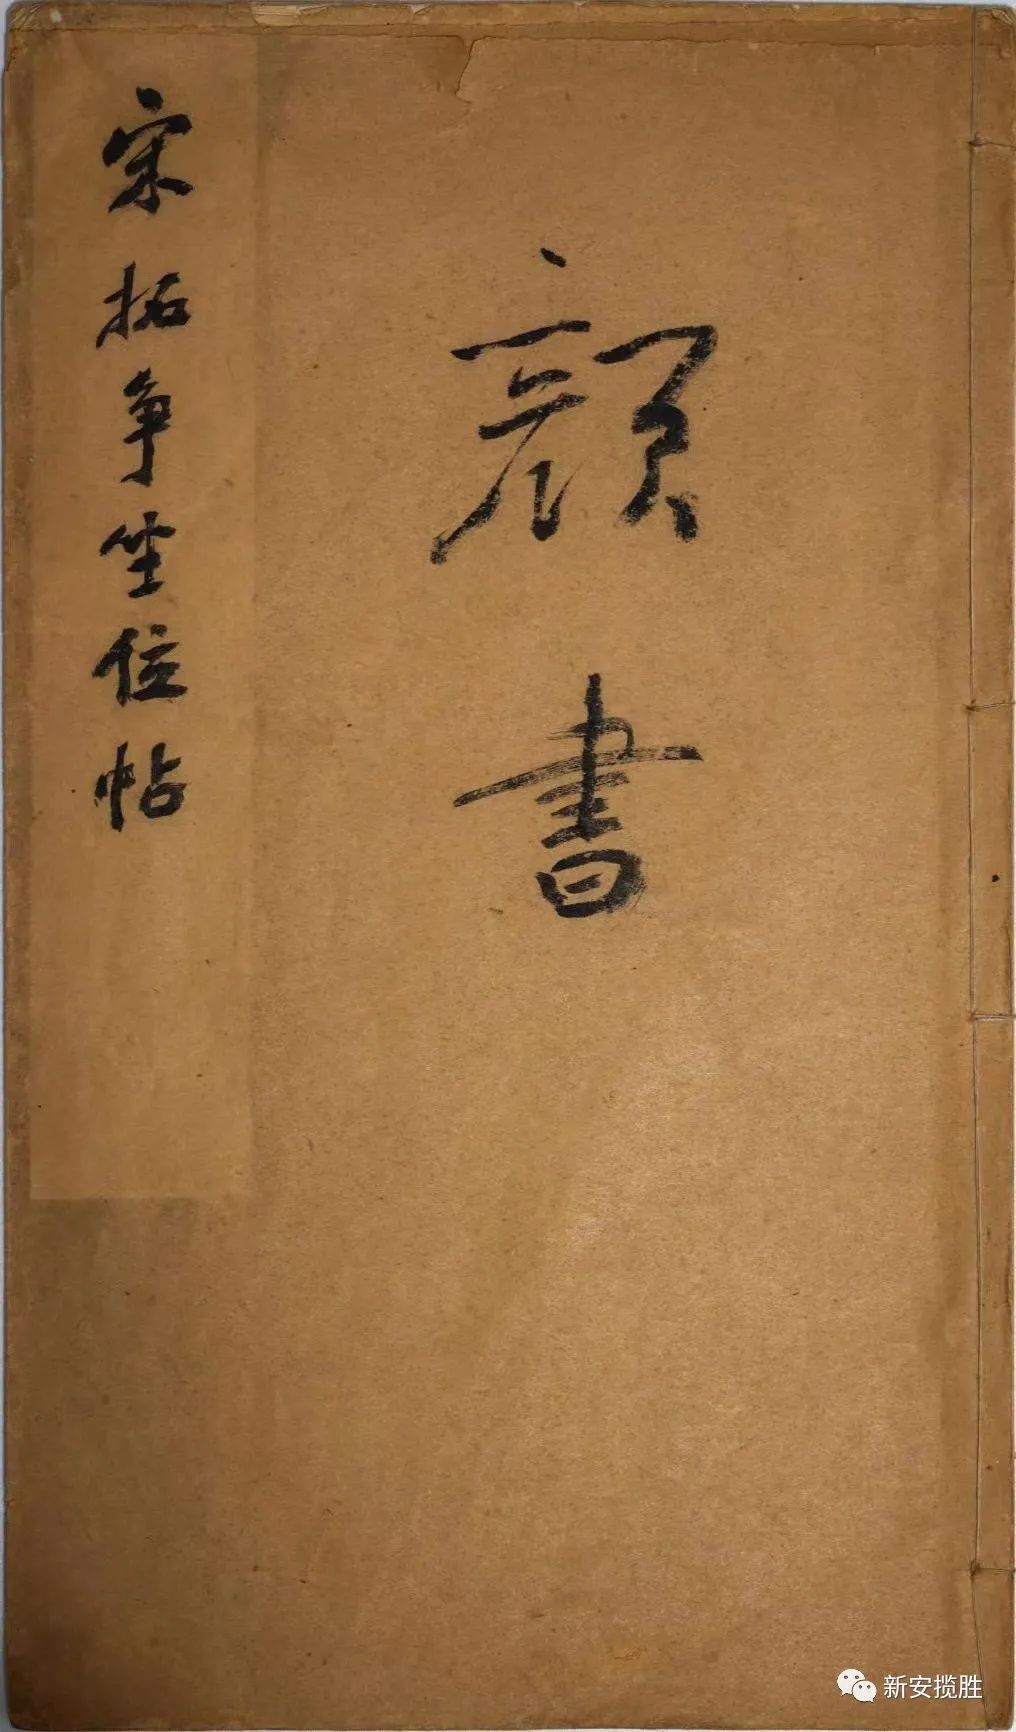 顔書
宋拓争坐位帖
新安揽胜